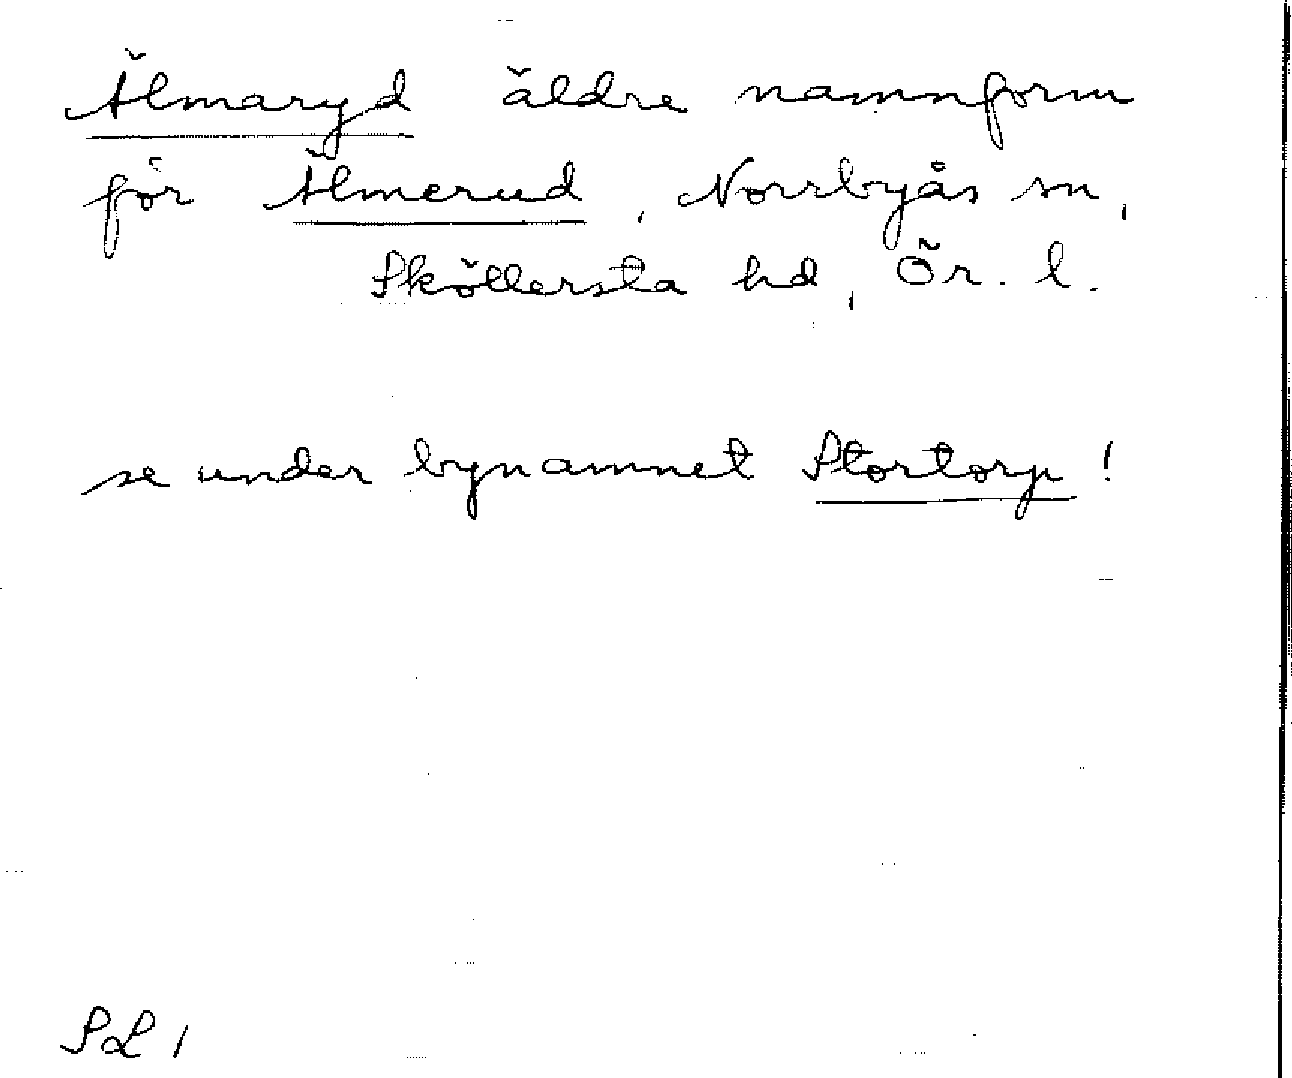 Älmaryd äldre namnform
för Älmerud, Norrbyås sn,
Sköllersta hd, Ör. l.
se under bynamnet Stortorp!
SL 1